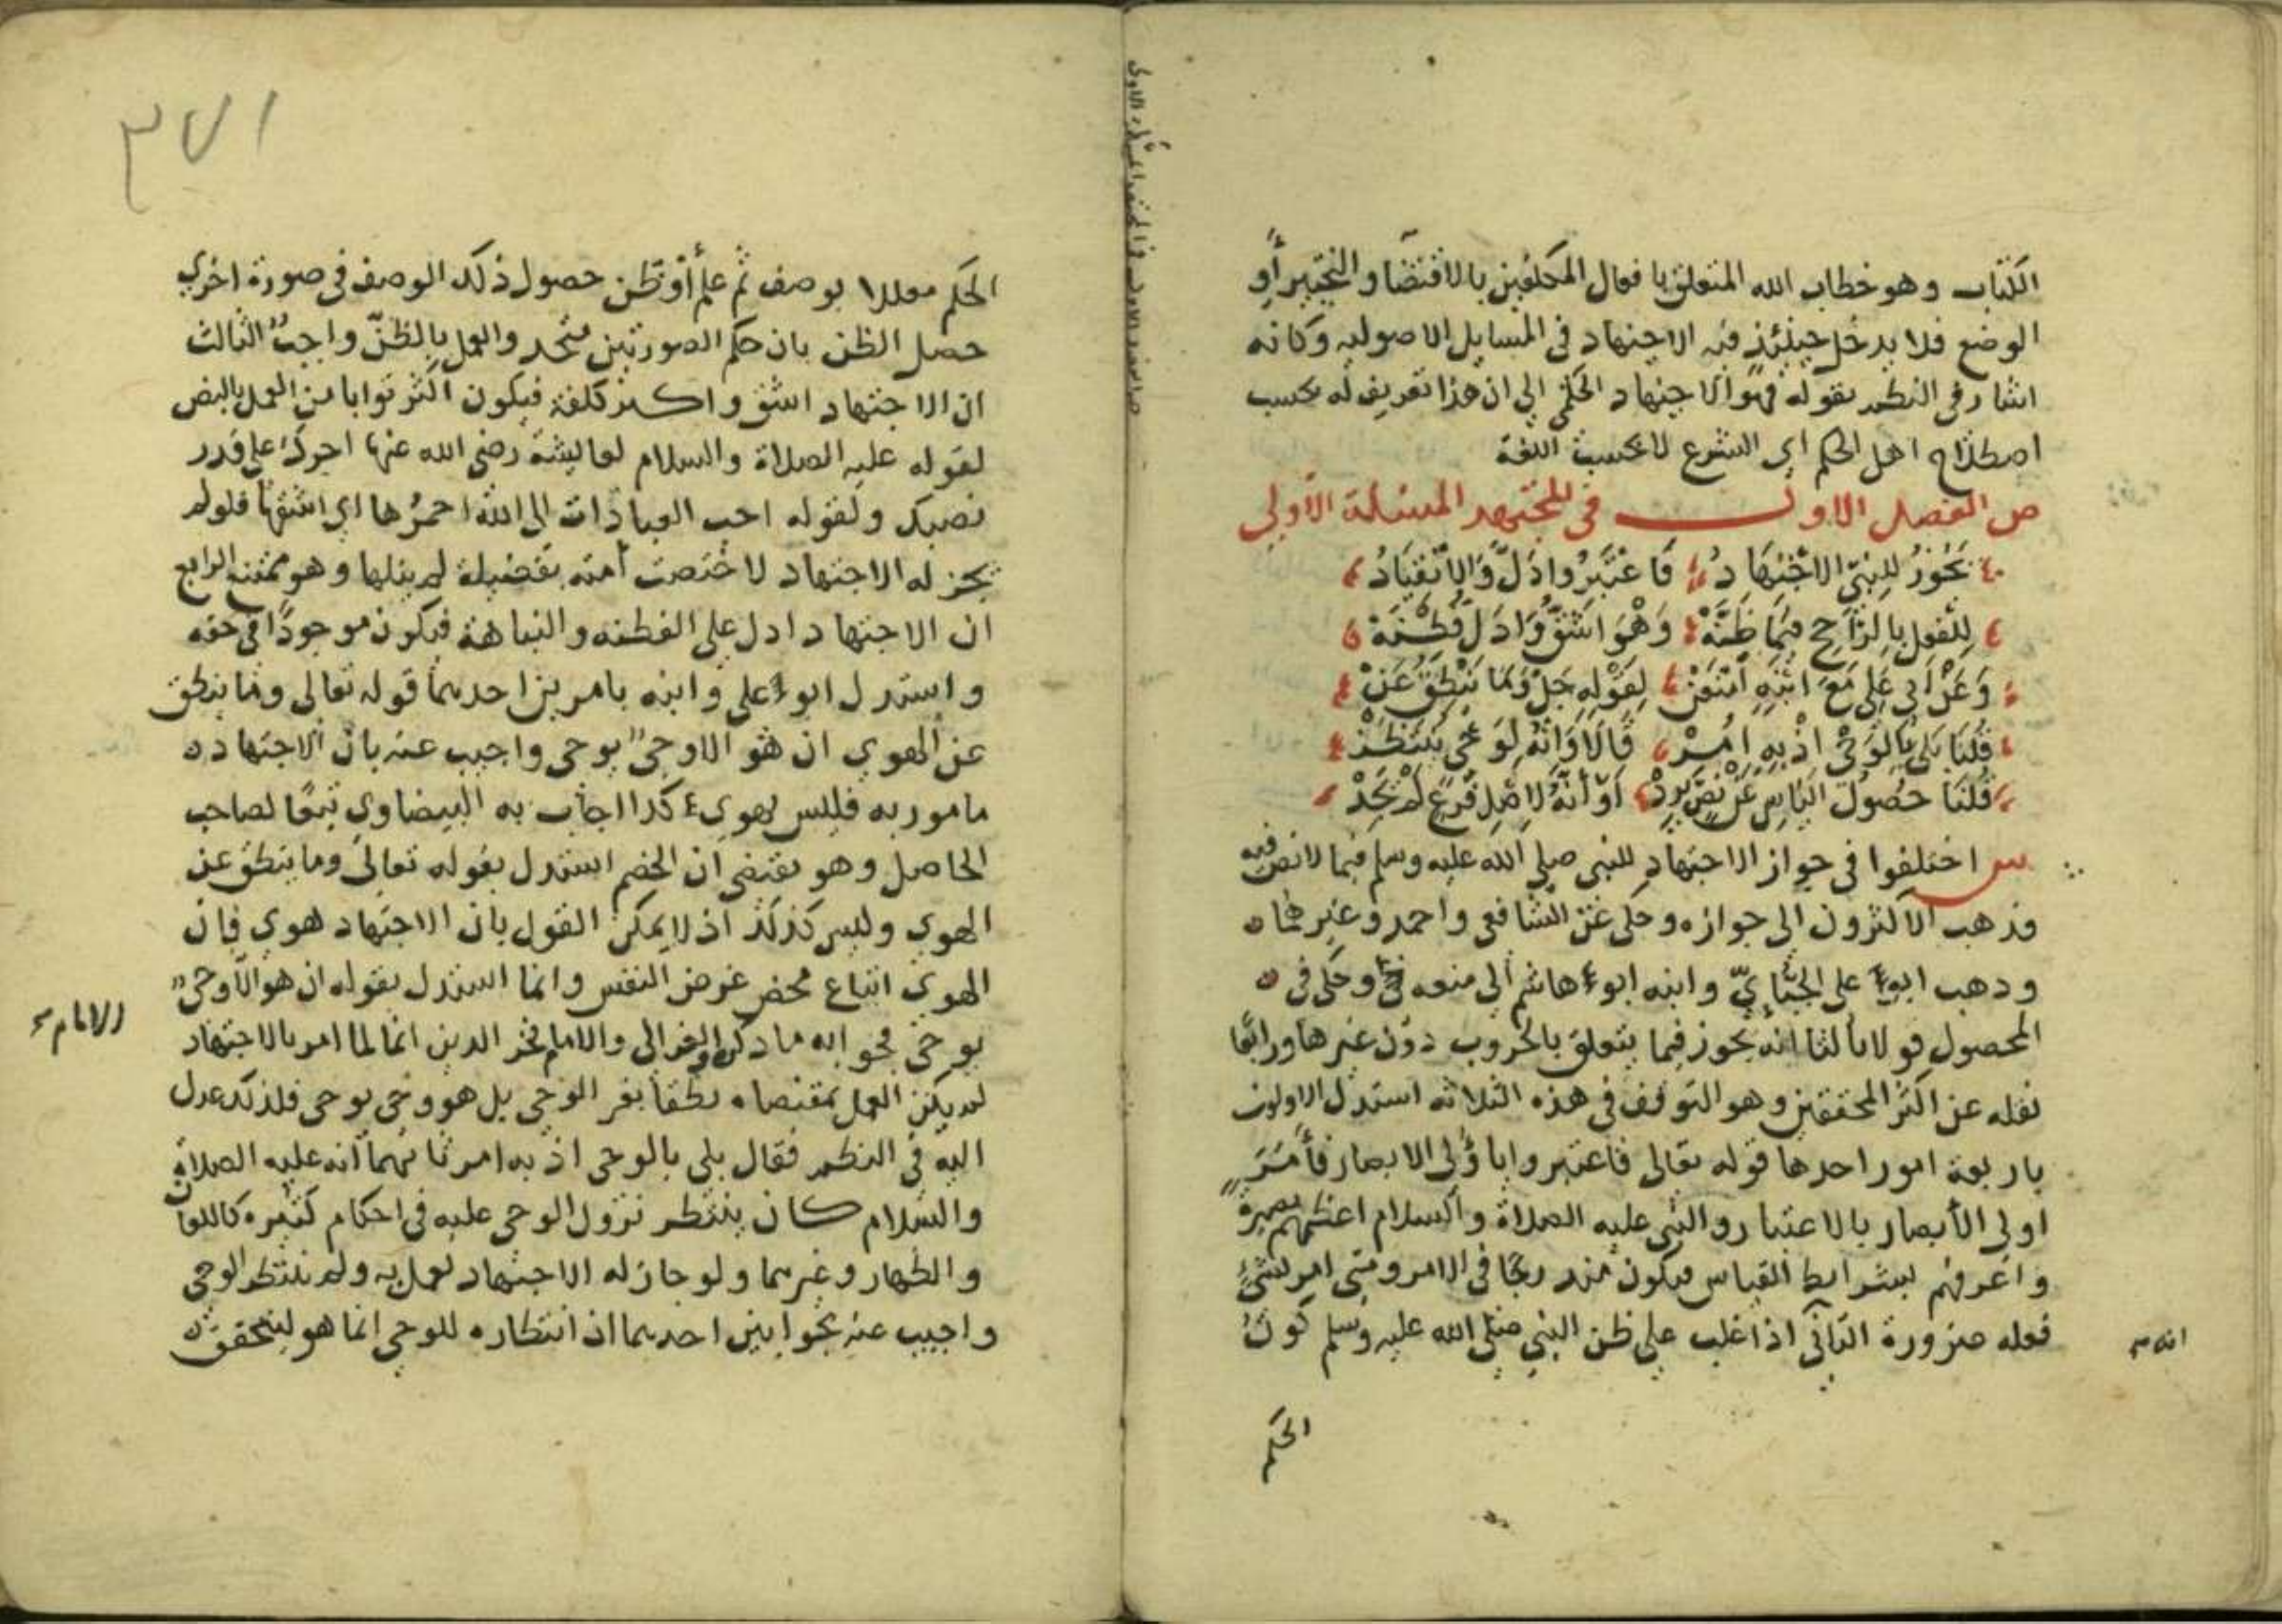 الكتاب وهو خطاب الله المتعلق بافعال المكلفين بالاقتضا والتخيير أو
الوضع فلا يدخل حينئذ فيه الاجتهاد في المسايل الاصوليه وكانه
اشار في النظم بقوله فهو الاجتهاد الحكمي الي ان هذا تعريف له بحسب
اصطلاح اهل الحكم اي الشرع لا بحسب اللغة
ص الفصل الاول في المجتهد المسئلة الاولي
يَجُوزُ لِلنَّبِيِّ الاجْتِهَادُ فَاعْتَبِرُوا دَلَّ وَالِانْقِيَادُ
لِلْعَمَلِ بِالرَّاجِحِ فِيمَا ظَنَّهْ وَهْوَ اشَقُّ وَادَلُّ فِطْنَهْ
وَعَنْ أَبِي عَلِي مَعَ ابْنِهِ امْتَنَعْ لِقَوْلِهِ جَلَّ وَمَا يَنْطِقُ عَنْ
قُلْنَا بَلَى بِالوَحْيِ اذْ بِهِ أُمِرْ قَالَا وَانَّهُ لِوَحْيٍ يَنْتَظِرْ
قُلْنَا حُصُولَ اليَاسِ عَنْ نَصٍّ يَرِدْ أَوْ أَنَّهُ لِاصْلِ فَرْعٍ لَمْ يَجِدْ
س اختلفوا في جواز الاجتهاد للنبي صلي الله عليه وسلم فيما لا نص فيه
فذهب الاكثرون الي جوازه وحكي عن الشافعي واحمد وغيرهما
وذهب ابو علي الجبّايّ وابنه ابو هاشم الي منعه وحكي في
المحصول قولا ثالثا انه يجوز فيما يتعلق بالحروب دون غيرها ورابعًا
نقله عن اكثر المحققين وهو التوقف في هذه الثلاثه استدل الاولون
باربعة امور احدها قوله تعالي فاعتبروا يا ؤلي الابصار فأمر
اولي الأبصار بالاعتبار والنبي عليه الصلاة والسلام اعظمهم بصيرةً
واعرفهم بشرايط القياس فيكون مندرجًا في الامر ومتي امر بشئ
فعله ضرورة الثاني اذا غلب علي ظن النبي صلي الله عليه وسلم كون
انه
الحكم
٣٧١
الحكم معللا بوصف ثم علم أو ظن حصول ذلك الوصف في صورة اخري
حصل الظن بان حكم الصورتين متحد والعمل بالظنّ واجبٌ الثالث
ان الاجتهاد اشق واكثر كلفة فيكون اكثر ثوابا من العمل بالنص
لقوله عليه الصلاة والسلام لعايشة رضي الله عنها اجرك علي قدر
نصبك ولقوله احب العبادات الي الله احمزُها اي اشقها فلو لم
يجز له الاجتهاد لاختصت أمته بفضيلة لم ينلها وهو ممتنع الرابع
ان الاجتهاد ادل علي الفطنه والنباهة فيكون موجودًا في حقه
واستدل ابو علي وابنه بامرين احدهما قوله تعالي وما ينطق
عن الهوي ان هو الا وحيٌ يوحي واجيب عنه بان الاجتهاد
مامور به فليس بهوي كذا اجاب به البيضاوي تبعًا لصاحب
الحاصل وهو يقتضي ان الخصم استدل بقوله تعالي وما ينطق عن
الهوي وليس كذلك اذ لا يمكن القول بان الاجتهاد هوي فان
الهوي اتباع محض غرض النفس وانما استدل بقوله ان هو الا وحيٌ
يوحي فجوابه ما ذكره الغزالي والامام فخر الدين انما لما امر بالاجتهاد
الامام
لم يكن العمل بمقتضاه نطقا بغير الوحي بل هو وحي يوحي فلذلك عدل
اليه في النظم فقال بلي بالوحي اذ به امر ثانيهما انه عليه الصلاة
والسلام كان ينتظر نزول الوحي عليه في احكام كثيره كاللعان
والظهار وغيرهما ولو جاز له الاجتهاد لعمل به ولم ينتظر الوحي
واجيب عنه بجوابين احدهما ان انتظاره للوحي انما هو ليتحقق